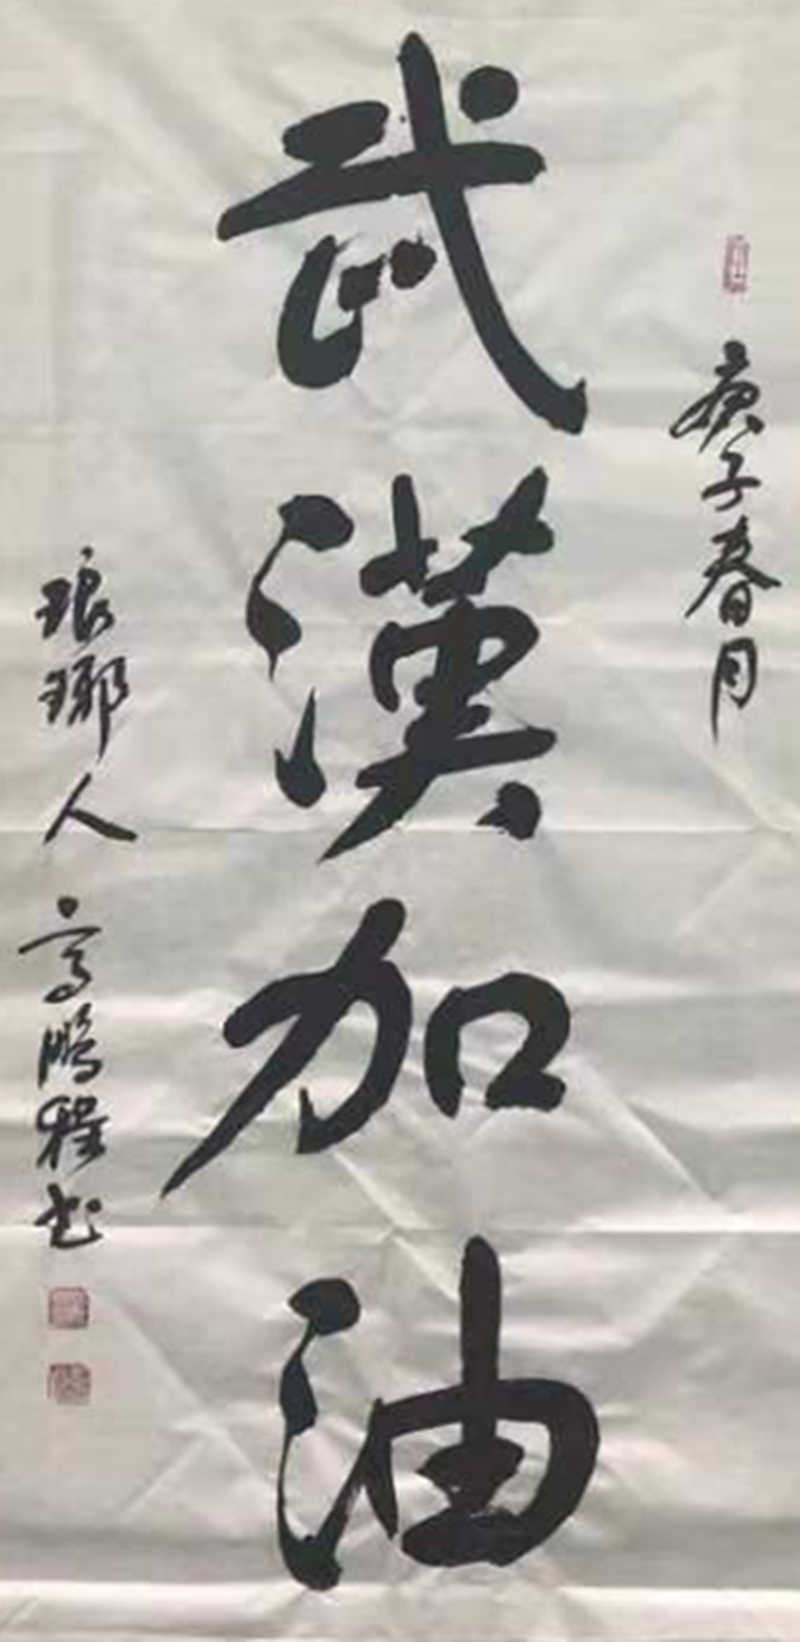 庚子春月
武漢加油
琅琊人高鹏程书